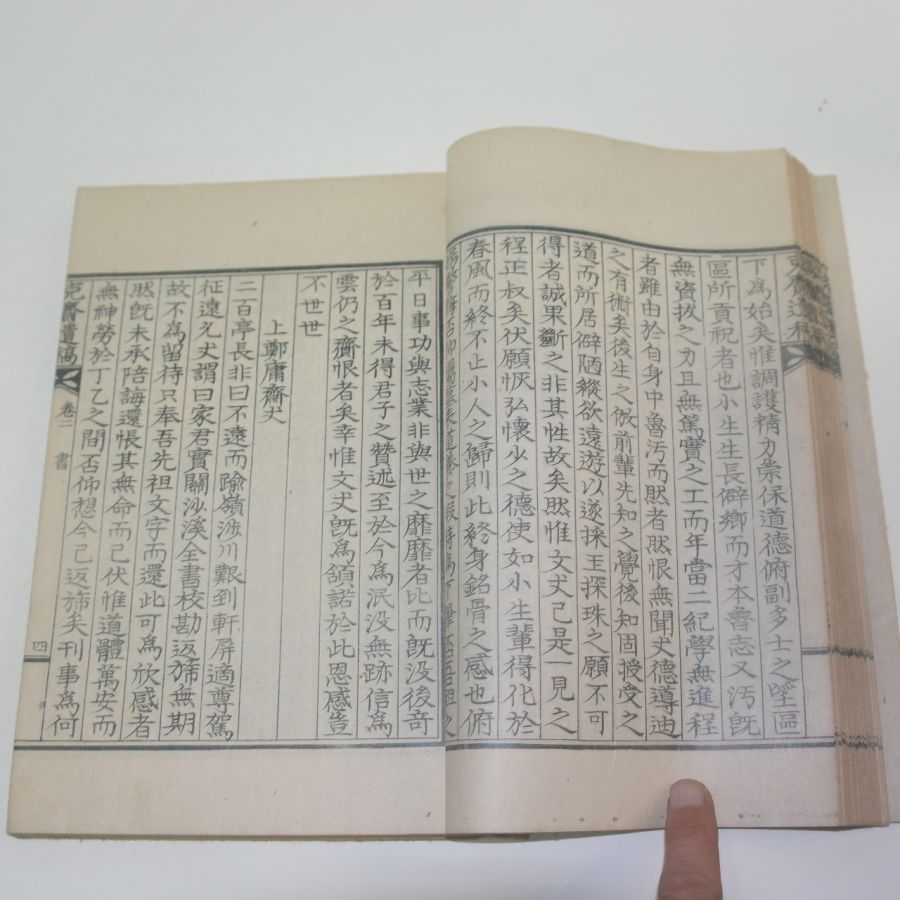 下為始矣惟調護精力彙保道德俯副多士之望區
區所貢祝者也小生生長僻鄕而才本魯志又汚旣
無資拔之力且無篤實之工而年當二紀學無進程
者難由於自身中魯汚而然者然恨無聞丈德導迪
之有術矣後生之倣前輩先知之覺後知固授受之
道而所居僻陋縱欲遠遊以遂採玉探珠之願不可
得者誠果斷之非其性故矣然惟文丈已是一見之
程正叔矣伏願恢弘懷少之德使如小生輩得化於
春風而終不止小人之歸則此終身銘骨之感也俯
平日事功與志業非與世之靡靡者比而旣没後奇
於百年未得君子之贊述至於今為泯没無跡信為
雲仍之齎恨者矣幸惟文丈旣為頷諾於此恩感豈
不世世
上鄭庸齋丈
二百亭長非曰不遠而踰嶺涉川艱到軒屏適尊駕
征遠允丈謂曰家君實關沙溪全書校勘返旆無期
故不為留待只奉吾先祖文字而還此可為欣感者
然旣未承陪誨還悵其無命而已伏惟道體萬安而
無神勞於丁乙之間否仰想今已返旆矣刊事為何
克齋遺稿 卷三 書 四